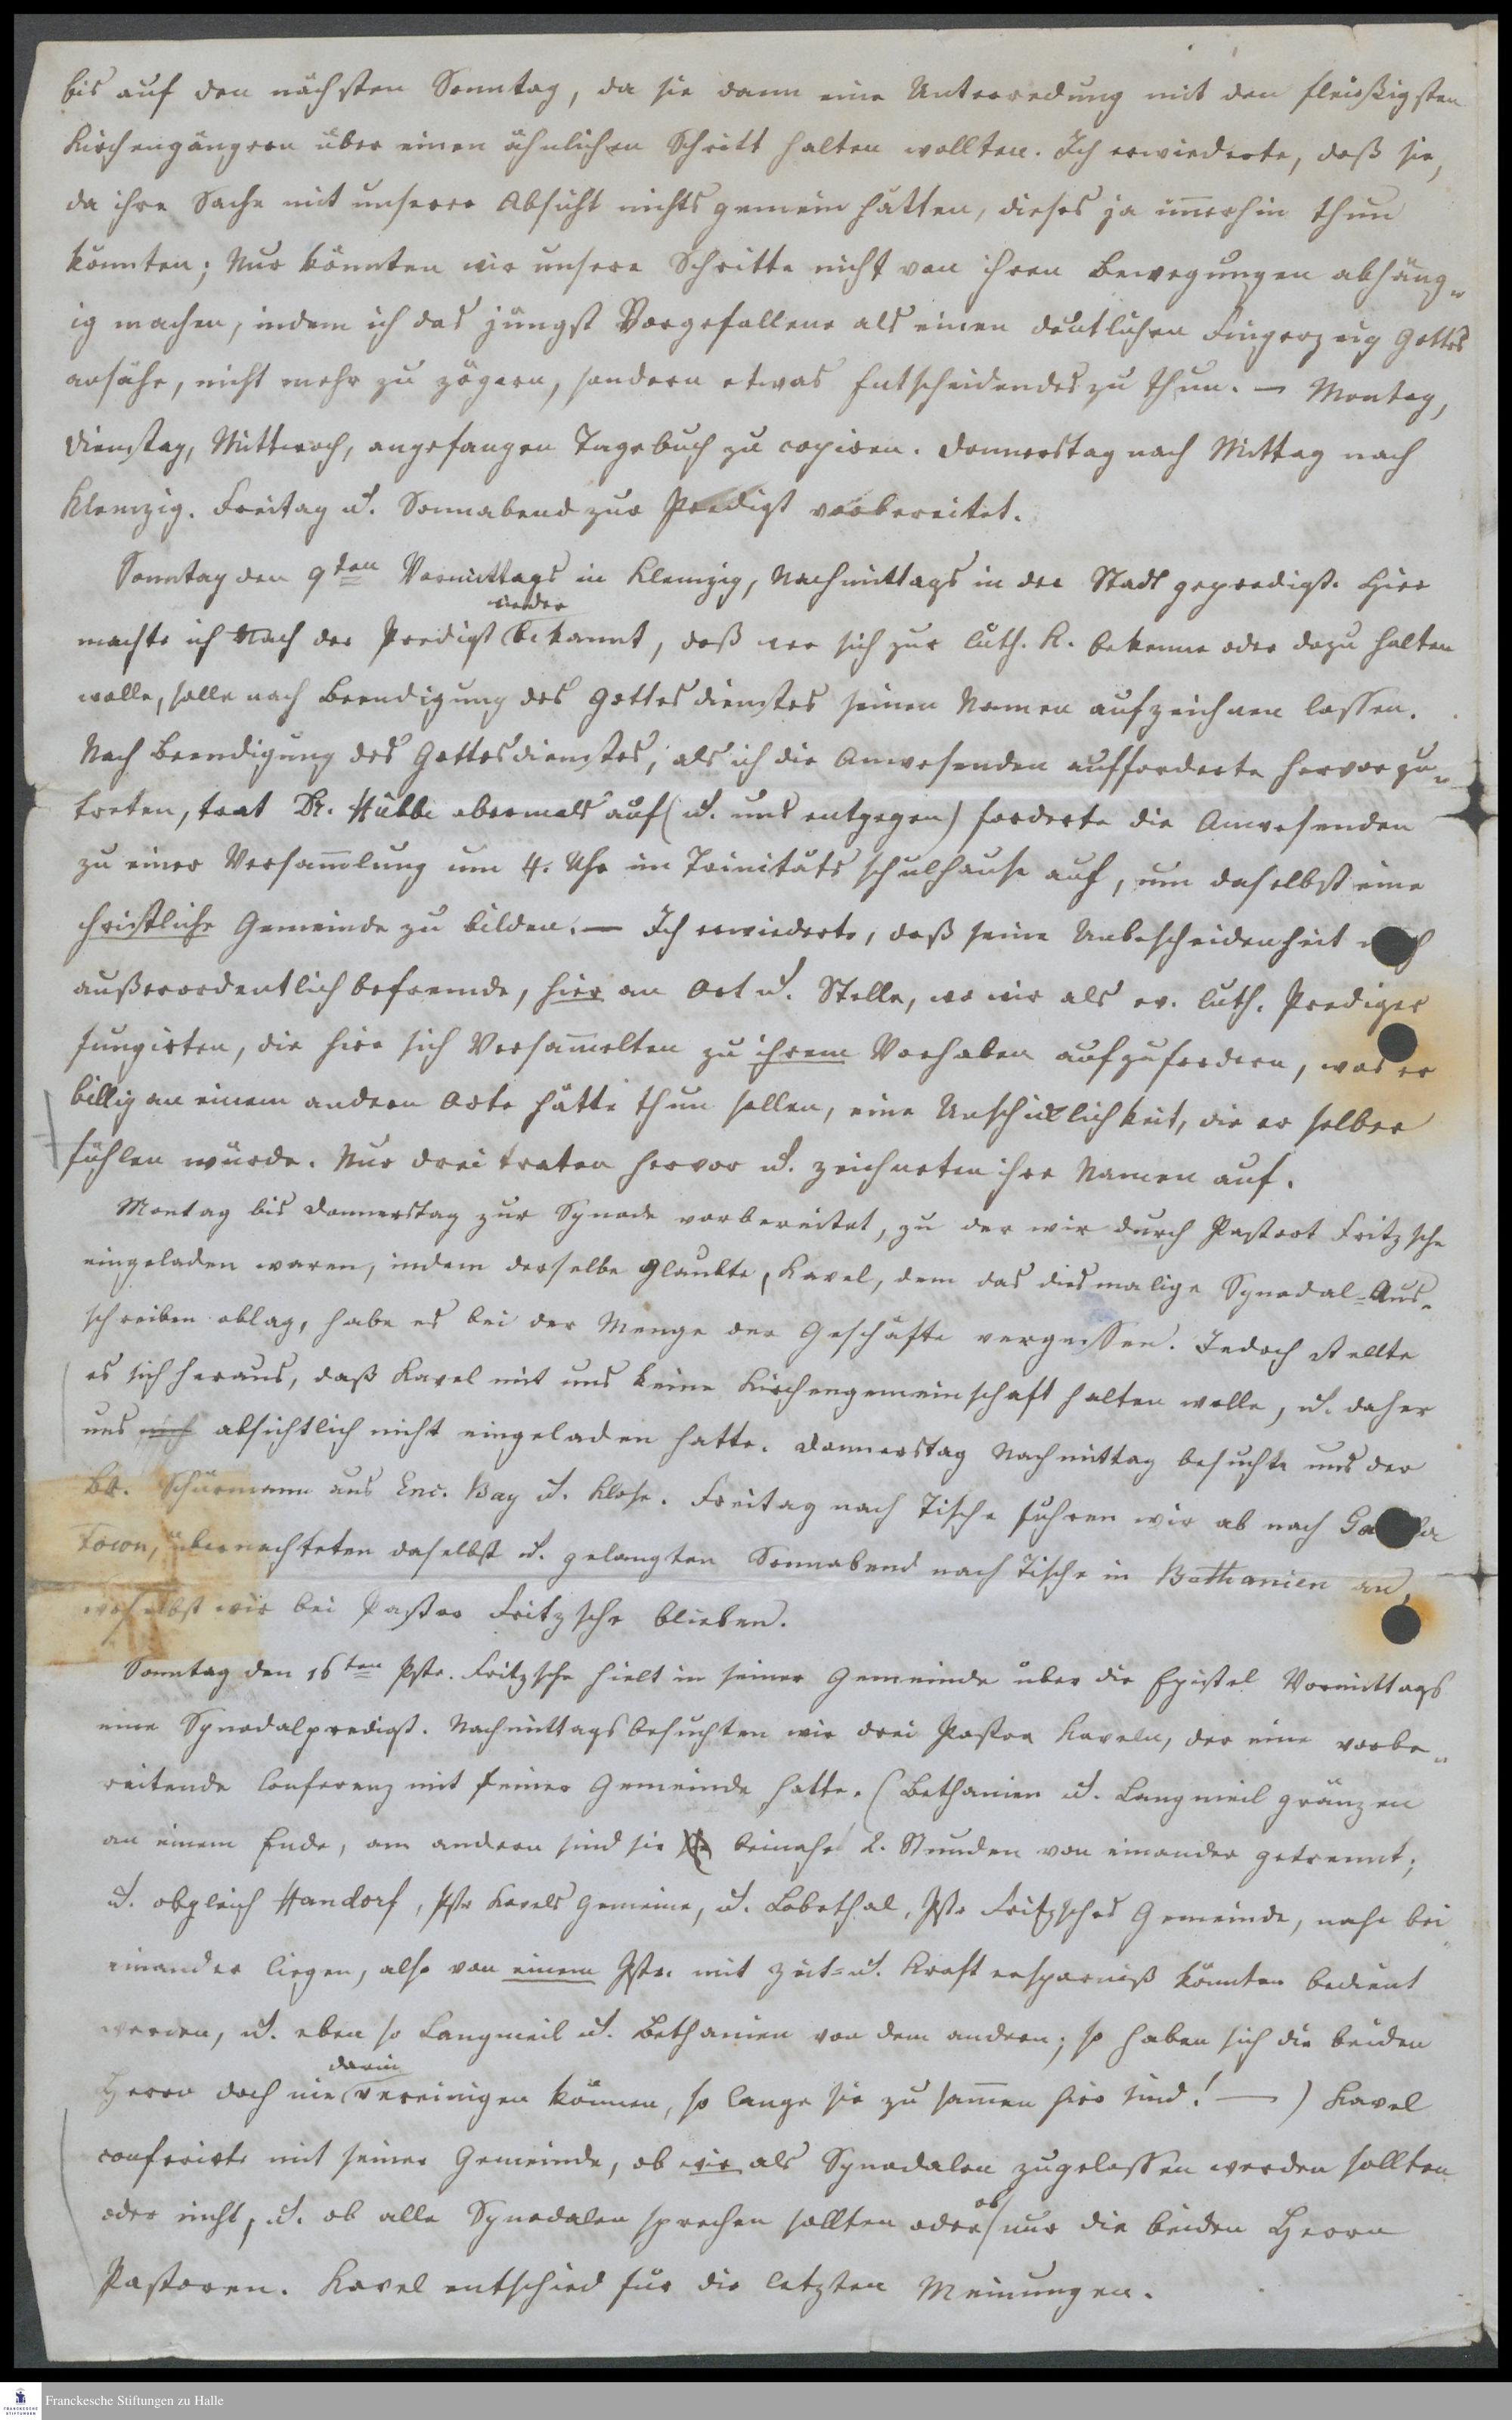 bis auf den nächsten Sonntag, da sie dann eine Unterredung mit den fleißigsten
Kirchengängern über einen ähnlichen Schritt halten wollten. Ich erwiederte, daß sie,
da ihre Sache mit unserer Absicht nichts gemein hätten, dieses ja im̅erhin thun
könnten; Nur könnten wir unsere Schritte nicht von ihren Bewegungen abhäng„
ig machen, indem ich das jüngst Vorgefallene als einen deutlichen Fingerzeig Gottes
ansähe, nicht mehr zu zögern, sondern etwas Entscheidendes zu thun. — Montag,
Dienstag, Mittwoch, angefangen Tagebuch zu copiren. Donnerstag nach Mittag nach
Klemzig. Freitag u. Sonnabend zur Predigt vorbereitet.
Sonntag den 9ten Vormittags in Klemzig, Nachmittags in der Stadt gepredigt. Hier
wieder
machte ich Nach der Predigt bekannt, daß wer sich zur luth. K. bekenne oder dazu halten
wolle, solle nach Beendigung des Gottesdienstes seinen Namen aufzeichnen lassen.
Nach Beendigung des Gottesdienstes, als ich die Anwesenden aufforderte hervorzu„
treten, trat Dr. Hübbe abermals auf (u. uns entgegen) forderte die Anwesenden
zu einer Versam̅lung um 4. Uhr im Trinitäts schulhause auf, um daselbst eine
christliche Gemeinde zu bilden. — Ich erwiederte, daß seine Unbescheidenheit mich
außerordentlich befremde, hier an Ort u. Stelle, wo wir als ev. luth. Prediger
fungirten, die hier sich Versam̅elten zu ihrem Vorhaben aufzufordern, was er
billig an einem andern Orte hätte thun sollen, eine Unschicklichkeit, die er selber
fühlen würde. Nur drei traten hervor u. zeichneten ihre Namen auf.
Montag bis Donnerstag zur Synode vorbereitet, zu der wir durch Pastort Fritzsche
eingeladen waren, indem derselbe glaubte, Kavel, dem das diesmalige Synodal-Aus„
schreiben oblag, habe es bei der Menge der Geschäfte vergessen. Jedoch stellte
es sich heraus, daß Kavel mit uns keine Kirchengemeinschaft halten wolle, u. daher
uns nich absichtlich nicht eingeladen hatte. Donnerstag Nachmittag besuchte uns der
Br. Schürmann aus Enc. Bay u. Klose. Freitag nach Tische fuhren wir ab nach Gawler
Town, übernachteten daselbst u. gelangten Sonnabend nach Tische in Bethanien an,
woselbst wir bei Pastor Fritzsche blieben.
Sonntag den 16ten Pstr. Fritzsche hielt in seiner Gemeinde über die Epistel Vormittags
eine Synodalpredigt. Nachmittags besuchten wir drei Pastor Kaveln, der eine vorbe„
reitende Conferenz mit seiner Gemeinde hatte. (Bethanien u. Langmeil gränzen
an einem Ende, am andern sind sie beinahe 2. Stunden von einander getrennt;
u. obgleich Handorf, Pstr Kavels Gemeine, u. Lobethal, Pstr Fritzsches Gemeinde, nahe bei
einander liegen, also von einem Pstr. mit Zeit- u. Kraft ersparniß könnten bedient
werden, u. eben so Langmeil u. Bethanien von dem andern; so haben sich die beiden
darin
Herrn doch nie vereinigen können, so lange sie zu sam̅en hier sind! —) Kavel
conferirte mit seiner Gemeinde, ob wir als Synodalen zugelassen werden sollten
ob
oder nicht, u. ob alle Synodalen sprechen sollten oder nur die beiden Herrn
Pastoren. Kavel entschied für die letzten Meinungen.
Franckesche Stiftungen zu Halle